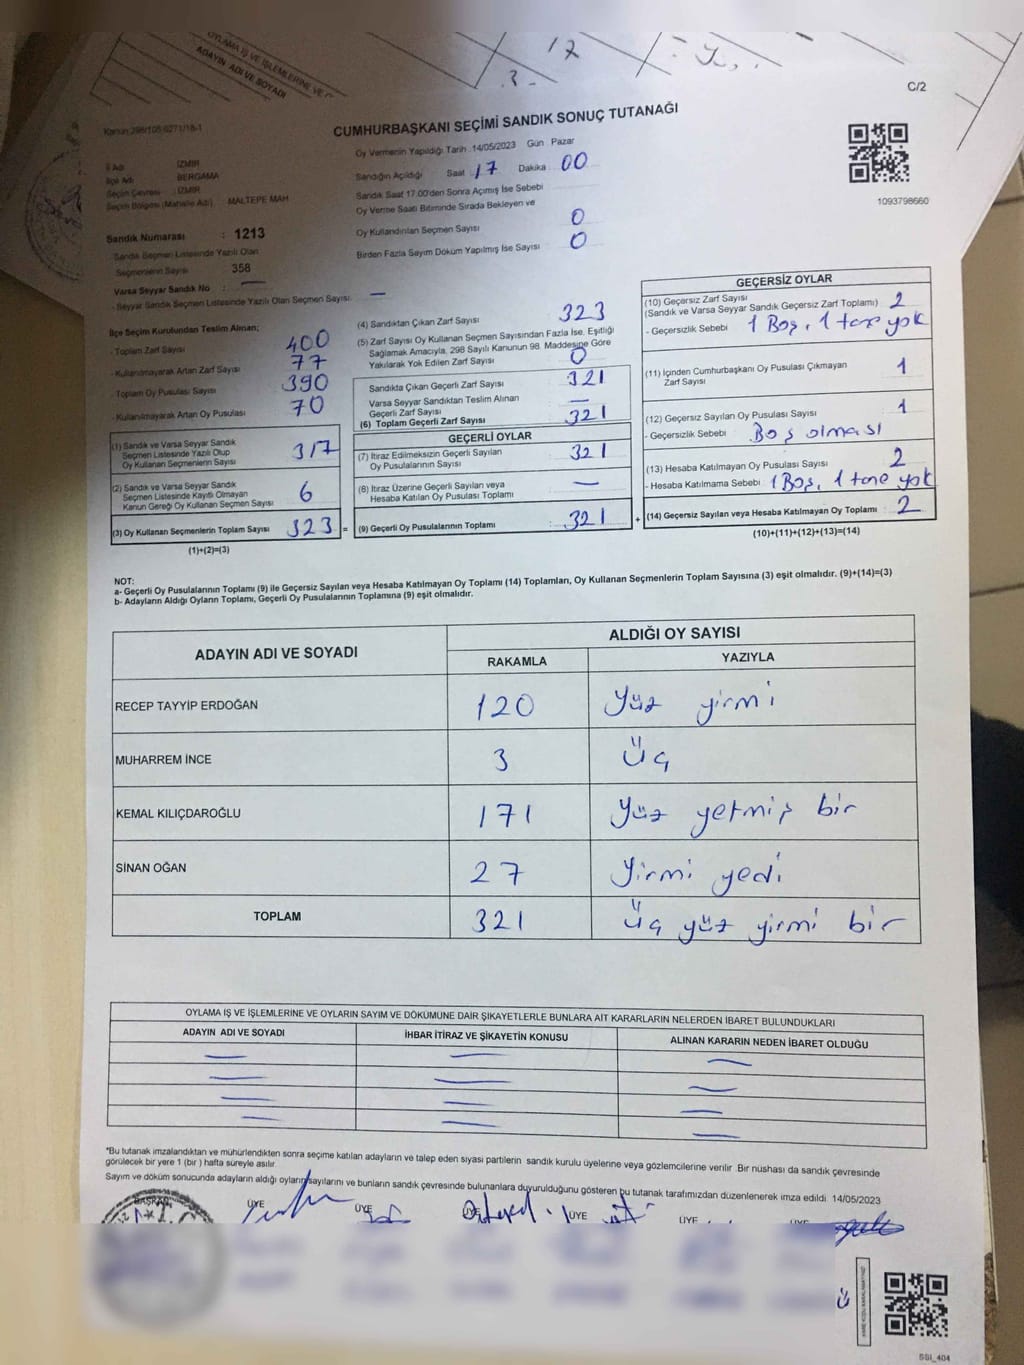 OYLAMA İŞ VE İŞLEMLERİNE VE
ADAYIN ADI VE SOYADI
12
3-
C/2
Kanun 298/105 6271/18-1
CUMHURBAŞKANI SEÇİMİ SANDIK SONUÇ TUTANAĞI
Oy Vermenin Yapıldığı Tarih 14/05/2023 Gün Pazar
İl Adı İZMİR
Sandığın Açıldığı Saat 17 Dakika 00
İlçe Adı BERGAMA
Seçim Çevresi : İZMİR
Sandık Saat 17:00'den Sonra Açılmış İse Sebebi
Seçim Bölgesi (Mahalle Adı) MALTEPE MAH
1093798660
Oy Verme Saati Bitiminde Sırada Bekleyen ve
Oy Kullandırılan Seçmen Sayısı 0
Sandık Numarası : 1213
Birden Fazla Sayım Döküm Yapılmış İse Sayısı 0
Sandık Seçmen Listesinde Yazılı Olan
Seçmenlerin Sayısı 358
Varsa Seyyar Sandık No : —
- Seyyar Sandık Seçmen Listesinde Yazılı Olan Seçmen Sayısı —
İlçe Seçim Kurulundan Teslim Alınan;
- Toplam Zarf Sayısı 400
- Kullanılmayarak Artan Zarf Sayısı 77
- Toplam Oy Pusulası Sayısı 390
- Kullanılmayarak Artan Oy Pusulası 70
(1) Sandık ve Varsa Seyyar Sandık
Seçmen Listesinde Yazılı Olup
Oy Kullanan Seçmenlerin Sayısı 317
(2) Sandık ve Varsa Seyyar Sandık
Seçmen Listesinde Kayıtlı Olmayan
Kanun Gereği Oy Kullanan Seçmen Sayısı 6
(3) Oy Kullanan Seçmenlerin Toplam Sayısı 323 =
(1)+(2)=(3)
(4) Sandıktan Çıkan Zarf Sayısı 323
(5) Zarf Sayısı Oy Kullanan Seçmen Sayısından Fazla İse, Eşitliği
Sağlamak Amacıyla, 298 Sayılı Kanunun 98. Maddesine Göre
Yakılarak Yok Edilen Zarf Sayısı 0
Sandıkta Çıkan Geçerli Zarf Sayısı 321
Varsa Seyyar Sandıktan Teslim Alınan
Geçerli Zarf Sayısı —
(6) Toplam Geçerli Zarf Sayısı 321
GEÇERLİ OYLAR
(7) İtiraz Edilmeksizin Geçerli Sayılan
Oy Pusulalarının Sayısı 321
(8) İtiraz Üzerine Geçerli Sayılan veya
Hesaba Katılan Oy Pusulası Toplamı —
(9) Geçerli Oy Pusulalarının Toplamı 321 +
GEÇERSİZ OYLAR
(10) Geçersiz Zarf Sayısı
(Sandık ve Varsa Seyyar Sandık Geçersiz Zarf Toplamı) 2
- Geçersizlik Sebebi 1 Boş, 1 tane yok
(11) İçinden Cumhurbaşkanı Oy Pusulası Çıkmayan
Zarf Sayısı 1
(12) Geçersiz Sayılan Oy Pusulası Sayısı 1
- Geçersizlik Sebebi Boş olması
(13) Hesaba Katılmayan Oy Pusulası Sayısı 2
- Hesaba Katılmama Sebebi 1 Boş, 1 tane yok
(14) Geçersiz Sayılan veya Hesaba Katılmayan Oy Toplamı 2
(10)+(11)+(12)+(13)=(14)
NOT:
a- Geçerli Oy Pusulalarının Toplamı (9) ile Geçersiz Sayılan veya Hesaba Katılmayan Oy Toplamı (14) Toplamları, Oy Kullanan Seçmenlerin Toplam Sayısına (3) eşit olmalıdır. (9)+(14)=(3)
b- Adayların Aldığı Oyların Toplamı, Geçerli Oy Pusulalarının Toplamına (9) eşit olmalıdır.
ADAYIN ADI VE SOYADI
ALDIĞI OY SAYISI
RAKAMLA YAZIYLA
RECEP TAYYİP ERDOĞAN 120 Yüz yirmi
MUHARREM İNCE 3 Üç
KEMAL KILIÇDAROĞLU 171 Yüz yetmiş bir
SİNAN OĞAN 27 Yirmi yedi
TOPLAM 321 Üç yüz yirmi bir
OYLAMA İŞ VE İŞLEMLERİNE VE OYLARIN SAYIM VE DÖKÜMÜNE DAİR ŞİKAYETLERLE BUNLARA AİT KARARLARIN NELERDEN İBARET BULUNDUKLARI
ADAYIN ADI VE SOYADI İHBAR İTİRAZ VE ŞİKAYETİN KONUSU ALINAN KARARIN NEDEN İBARET OLDUĞU
*Bu tutanak imzalandıktan ve mühürlendikten sonra seçime katılan adayların ve talep eden siyasi partilerin sandık kurulu üyelerine veya gözlemcilerine verilir. Bir nüshası da sandık çevresinde
görülecek bir yere 1 (bir ) hafta süreyle asılır.
Sayım ve döküm sonucunda adayların aldığı oyların sayılarını ve bunların sandık çevresinde bulunanlara duyurulduğunu gösteren bu tutanak tarafımızdan düzenlenerek imza edildi. 14/05/2023
BAŞKAN ÜYE ÜYE ÜYE ÜYE ÜYE ÜYE
SSI_404